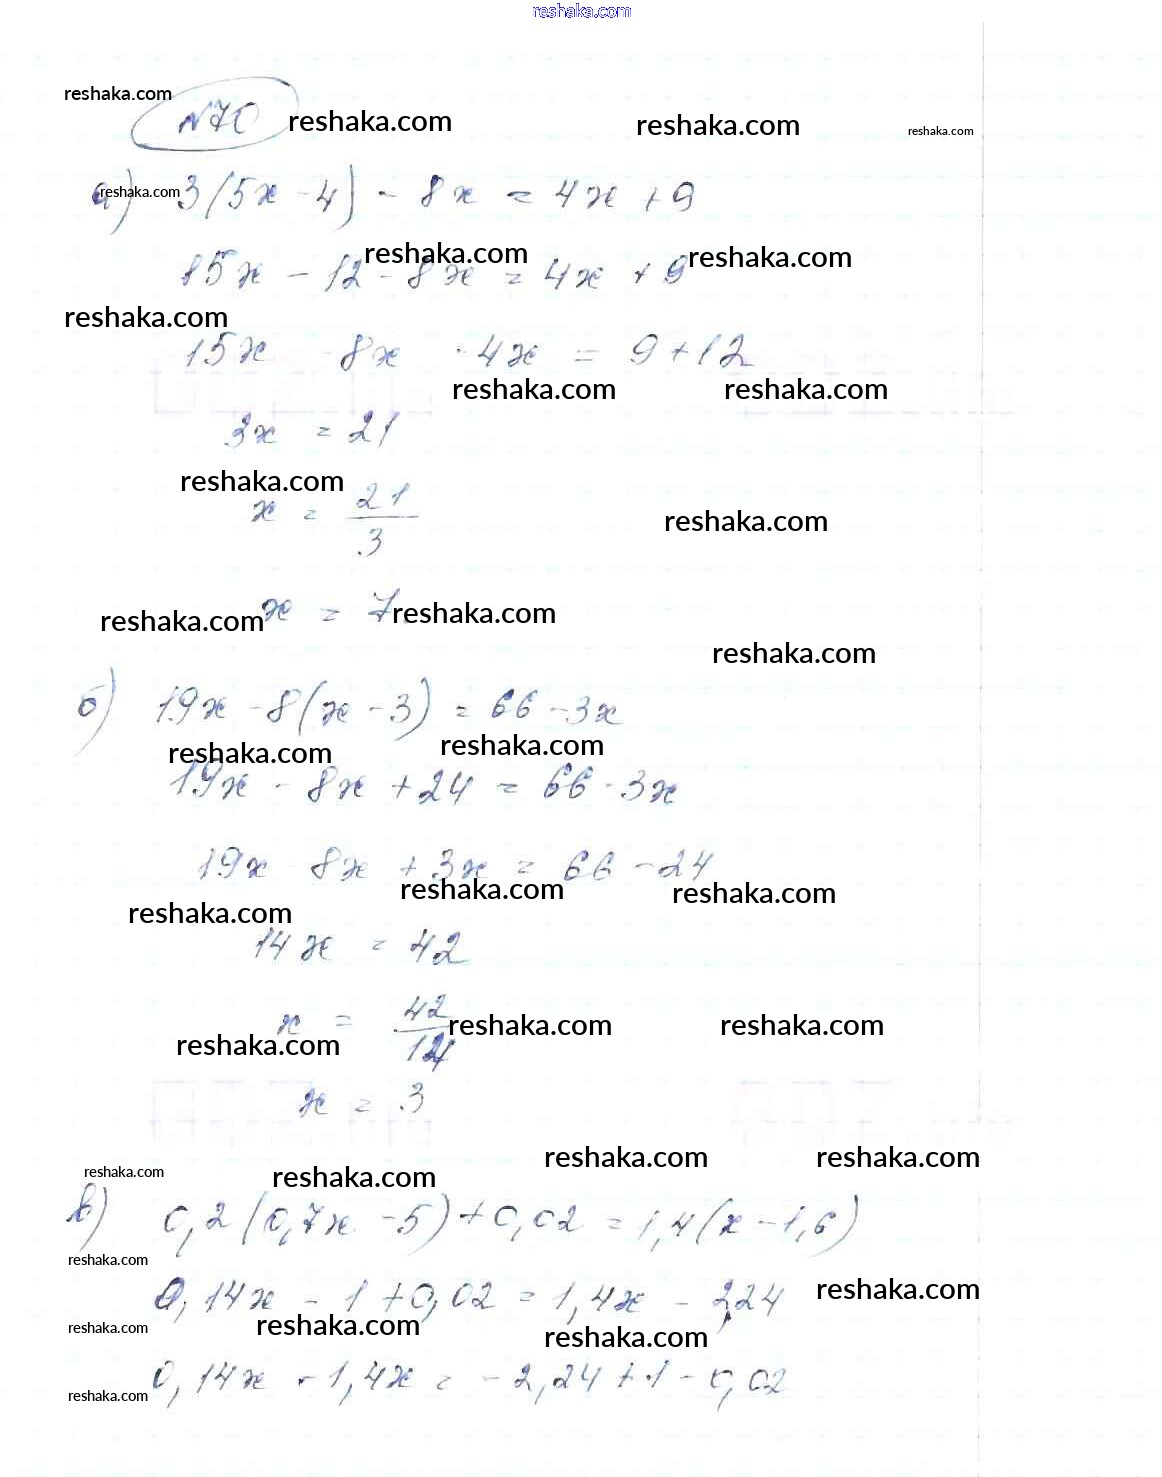 reshaka.com
reshaka.com
№70
reshaka.com
reshaka.com
reshaka.com
а) 3(5x - 4) - 8x = 4x + 9
reshaka.com
15x - 12 - 8x = 4x + 9
reshaka.com
reshaka.com
reshaka.com
15x - 8x - 4x = 9 + 12
reshaka.com
reshaka.com
3x = 21
reshaka.com
x = 21/3
reshaka.com
x = 7.
reshaka.com
reshaka.com
reshaka.com
б) 19x - 8(x - 3) = 66 - 3x
reshaka.com
reshaka.com
19x - 8x + 24 = 66 - 3x
19x - 8x + 3x = 66 - 24
reshaka.com
reshaka.com
reshaka.com
14x = 42
x = 42/14
reshaka.com
reshaka.com
reshaka.com
x = 3
reshaka.com
reshaka.com
reshaka.com
reshaka.com
в) 0,2(0,7x - 5) + 0,02 = 1,4(x - 1,6)
reshaka.com
0,14x - 1 + 0,02 = 1,4x - 2,24
reshaka.com
reshaka.com
reshaka.com
reshaka.com
0,14x - 1,4x = - 2,24 + 1 - 0,02
reshaka.com